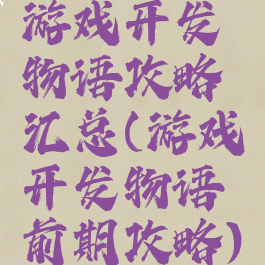 游戏开发
物语攻略
汇总(游戏
开发物语
前期攻略)